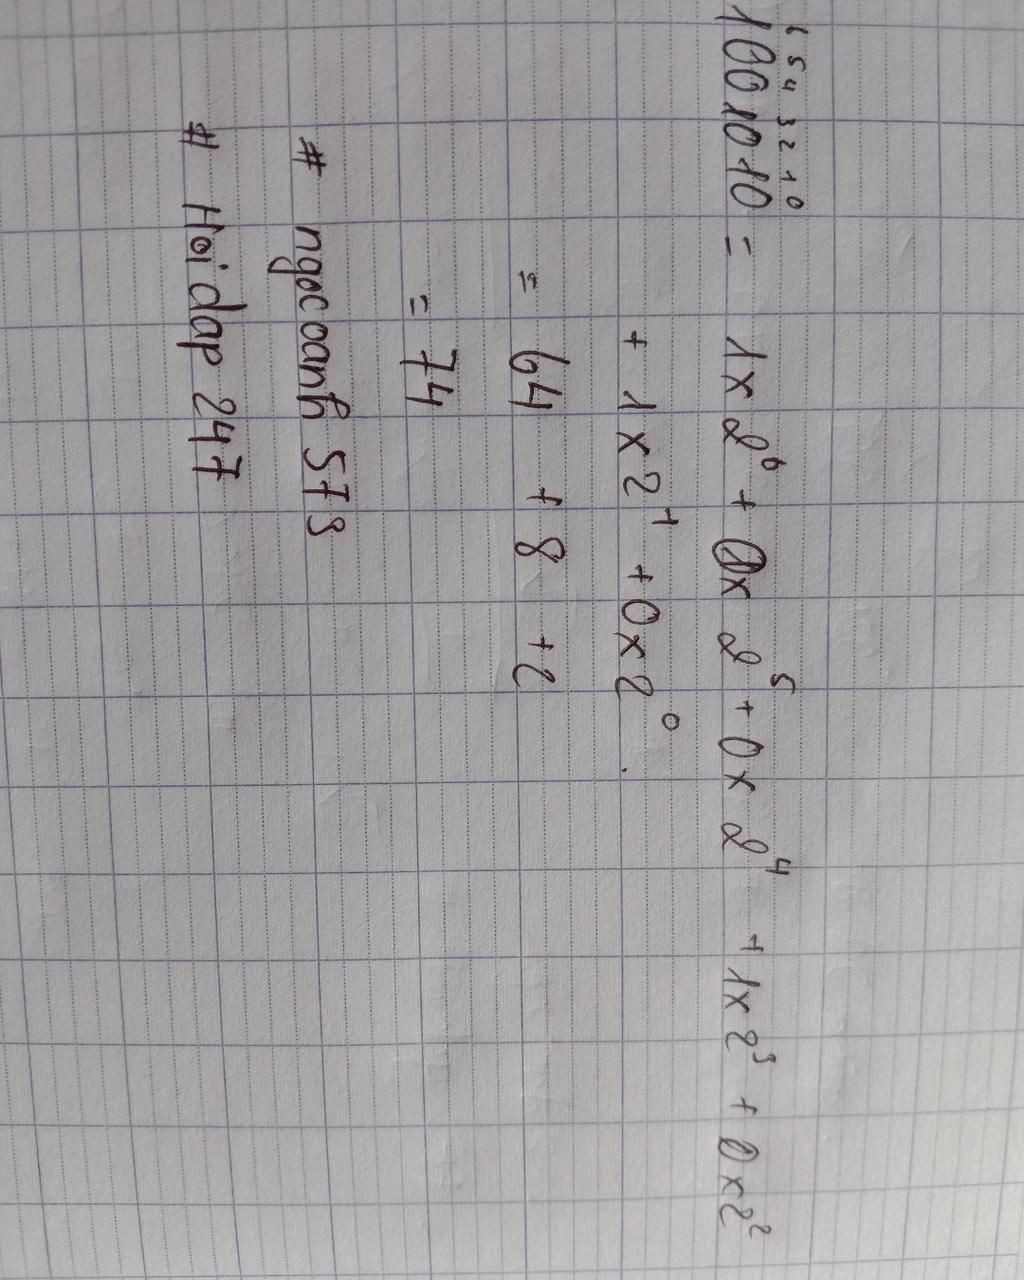 6 5 4 3 2 1 0
1001010 = 1x2⁶ + 0x2⁵ + 0x2⁴ + 1x2³ + 0x2²
+ 1x2¹ + 0x2⁰.
= 64 + 8 + 2
= 74
# ngocoanh 573
# Hoidap 247